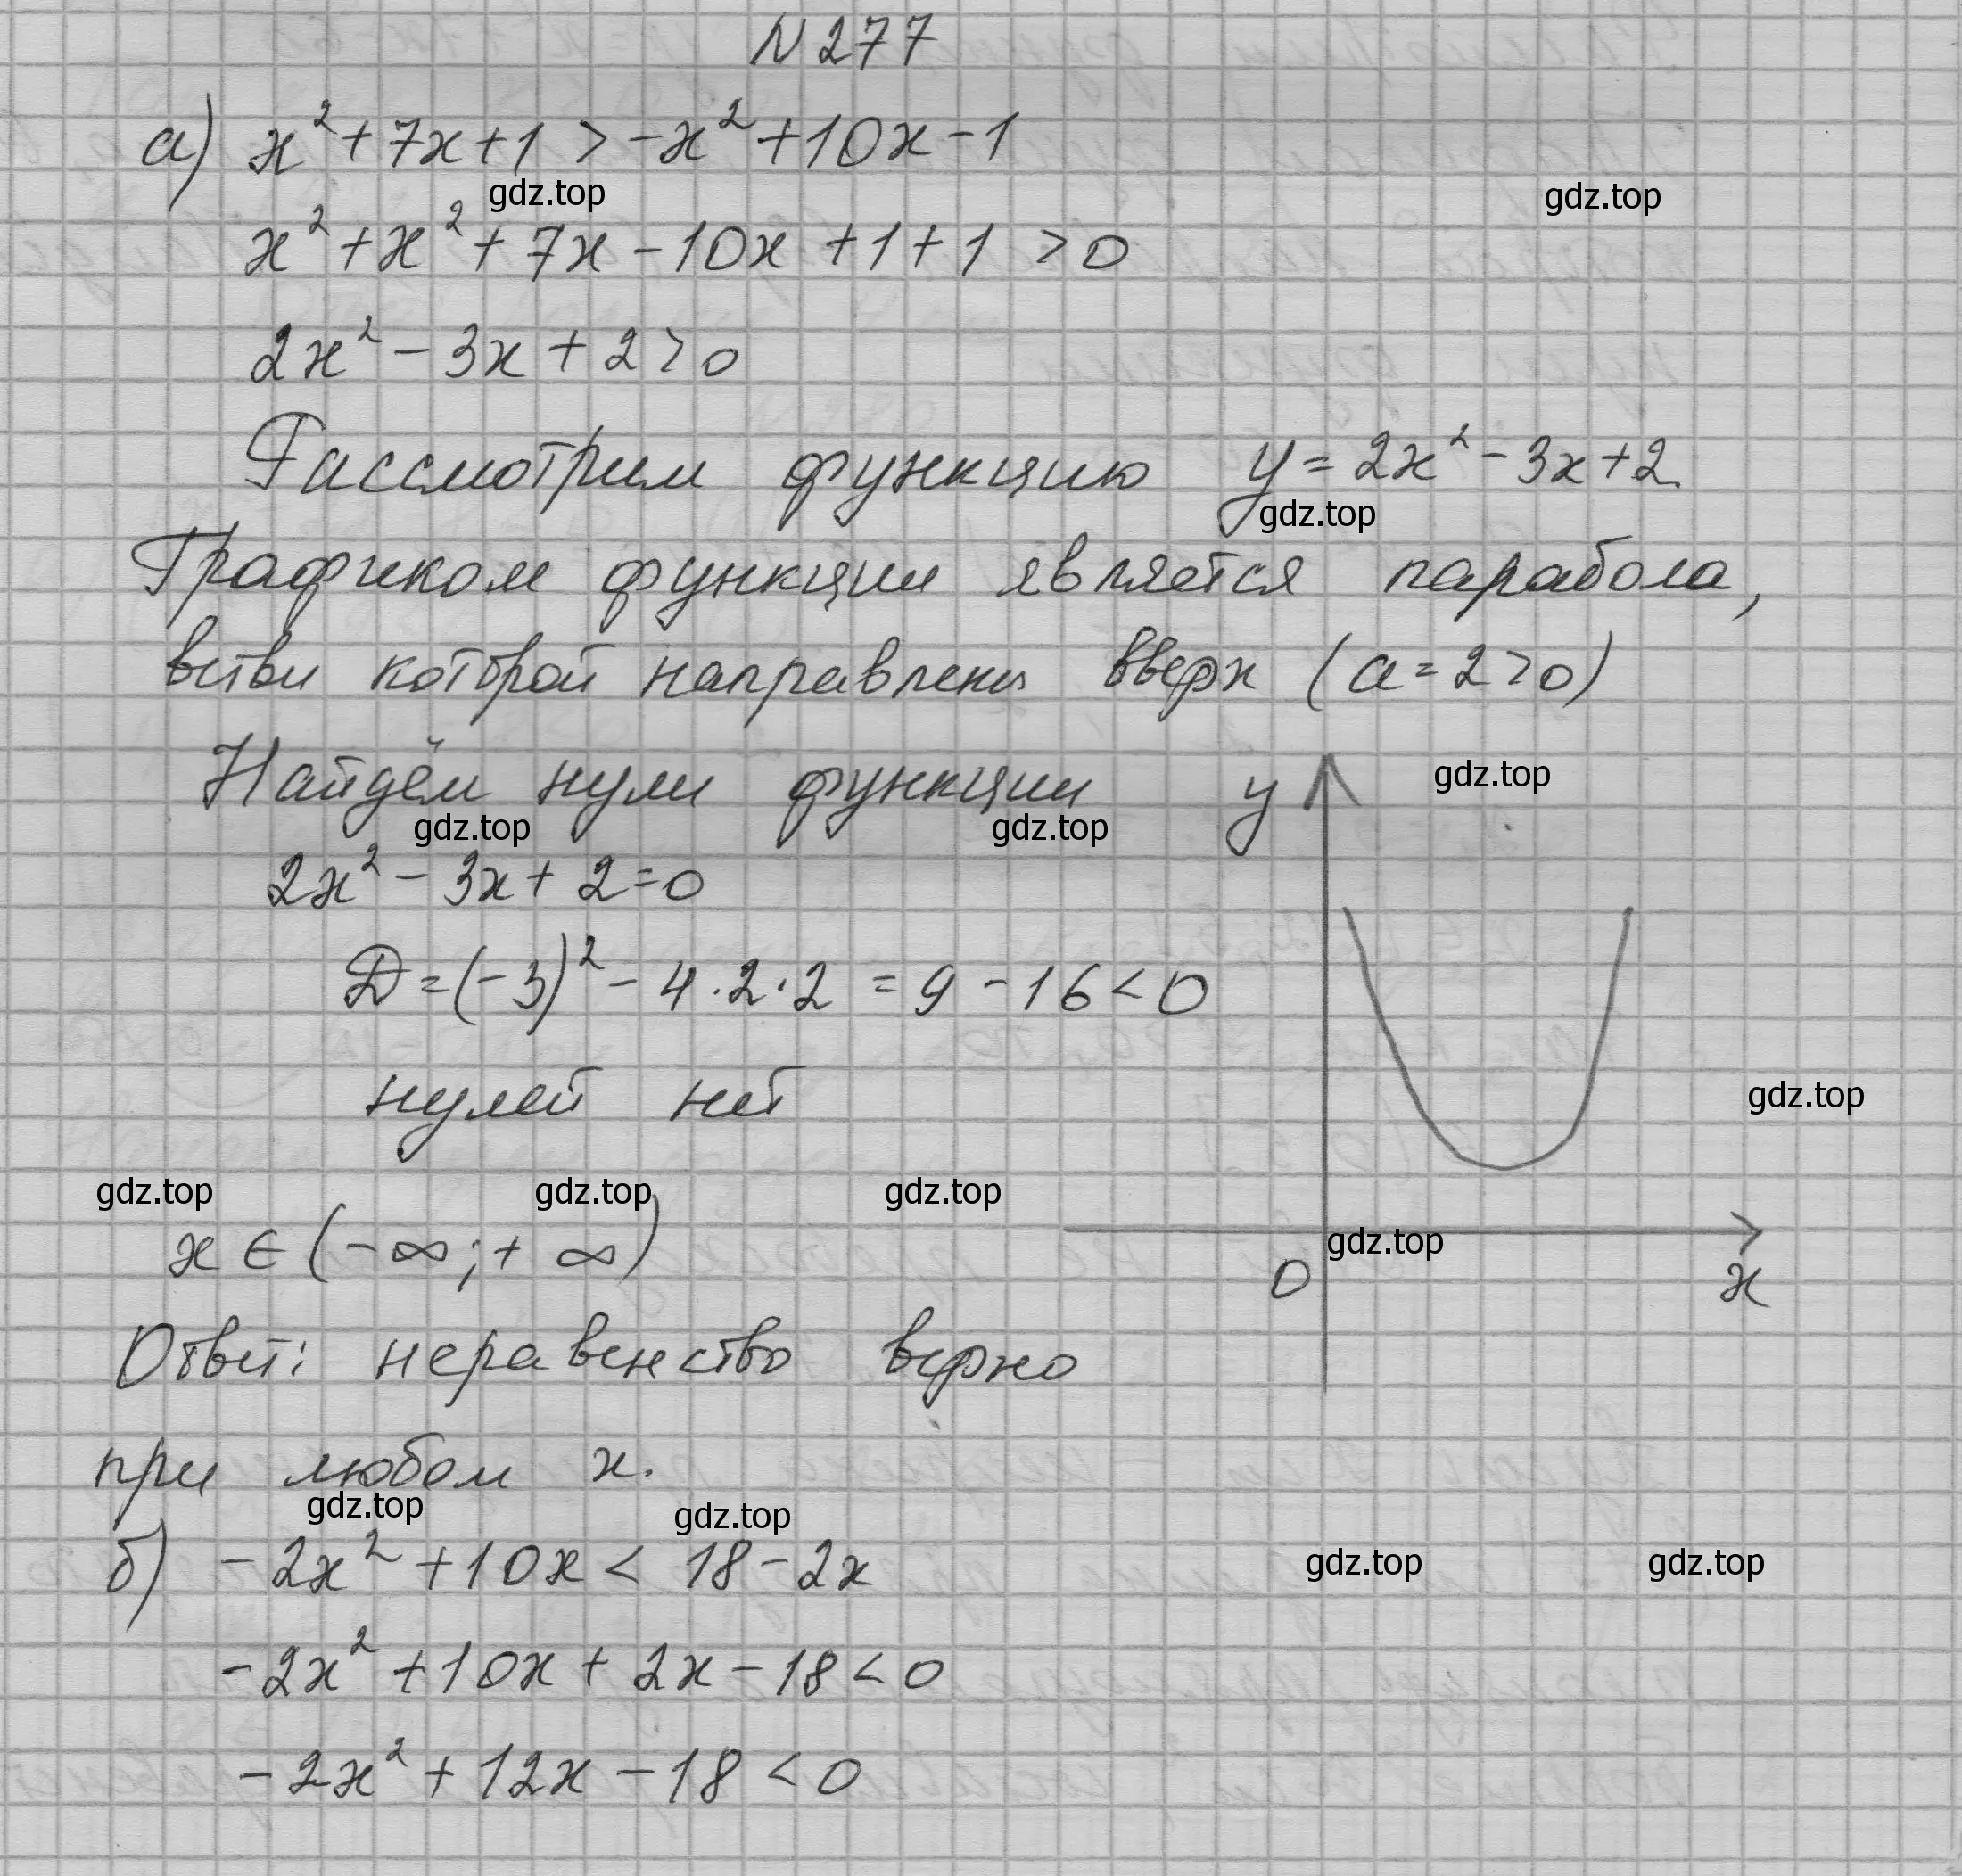 N 277
а) x² + 7x + 1 > -x² + 10x - 1
gdz.top
gdz.top
x² + x² + 7x - 10x + 1 + 1 > 0
2x² - 3x + 2 > 0
Рассмотрим функцию y = 2x² - 3x + 2.
gdz.top
Графиком функции является парабола,
ветви которой направлены вверх (a = 2 > 0)
Найдём нули функции
y
gdz.top
gdz.top
gdz.top
2x² - 3x + 2 = 0
D = (-3)² - 4 · 2 · 2 = 9 - 16 < 0
нулей нет
gdz.top
gdz.top
gdz.top
gdz.top
x ∈ (-∞; +∞)
gdz.top
0
x
Ответ: неравенство верно
при любом x.
gdz.top
gdz.top
б) -2x² + 10x < 18 - 2x
gdz.top
gdz.top
-2x² + 10x + 2x - 18 < 0
-2x² + 12x - 18 < 0